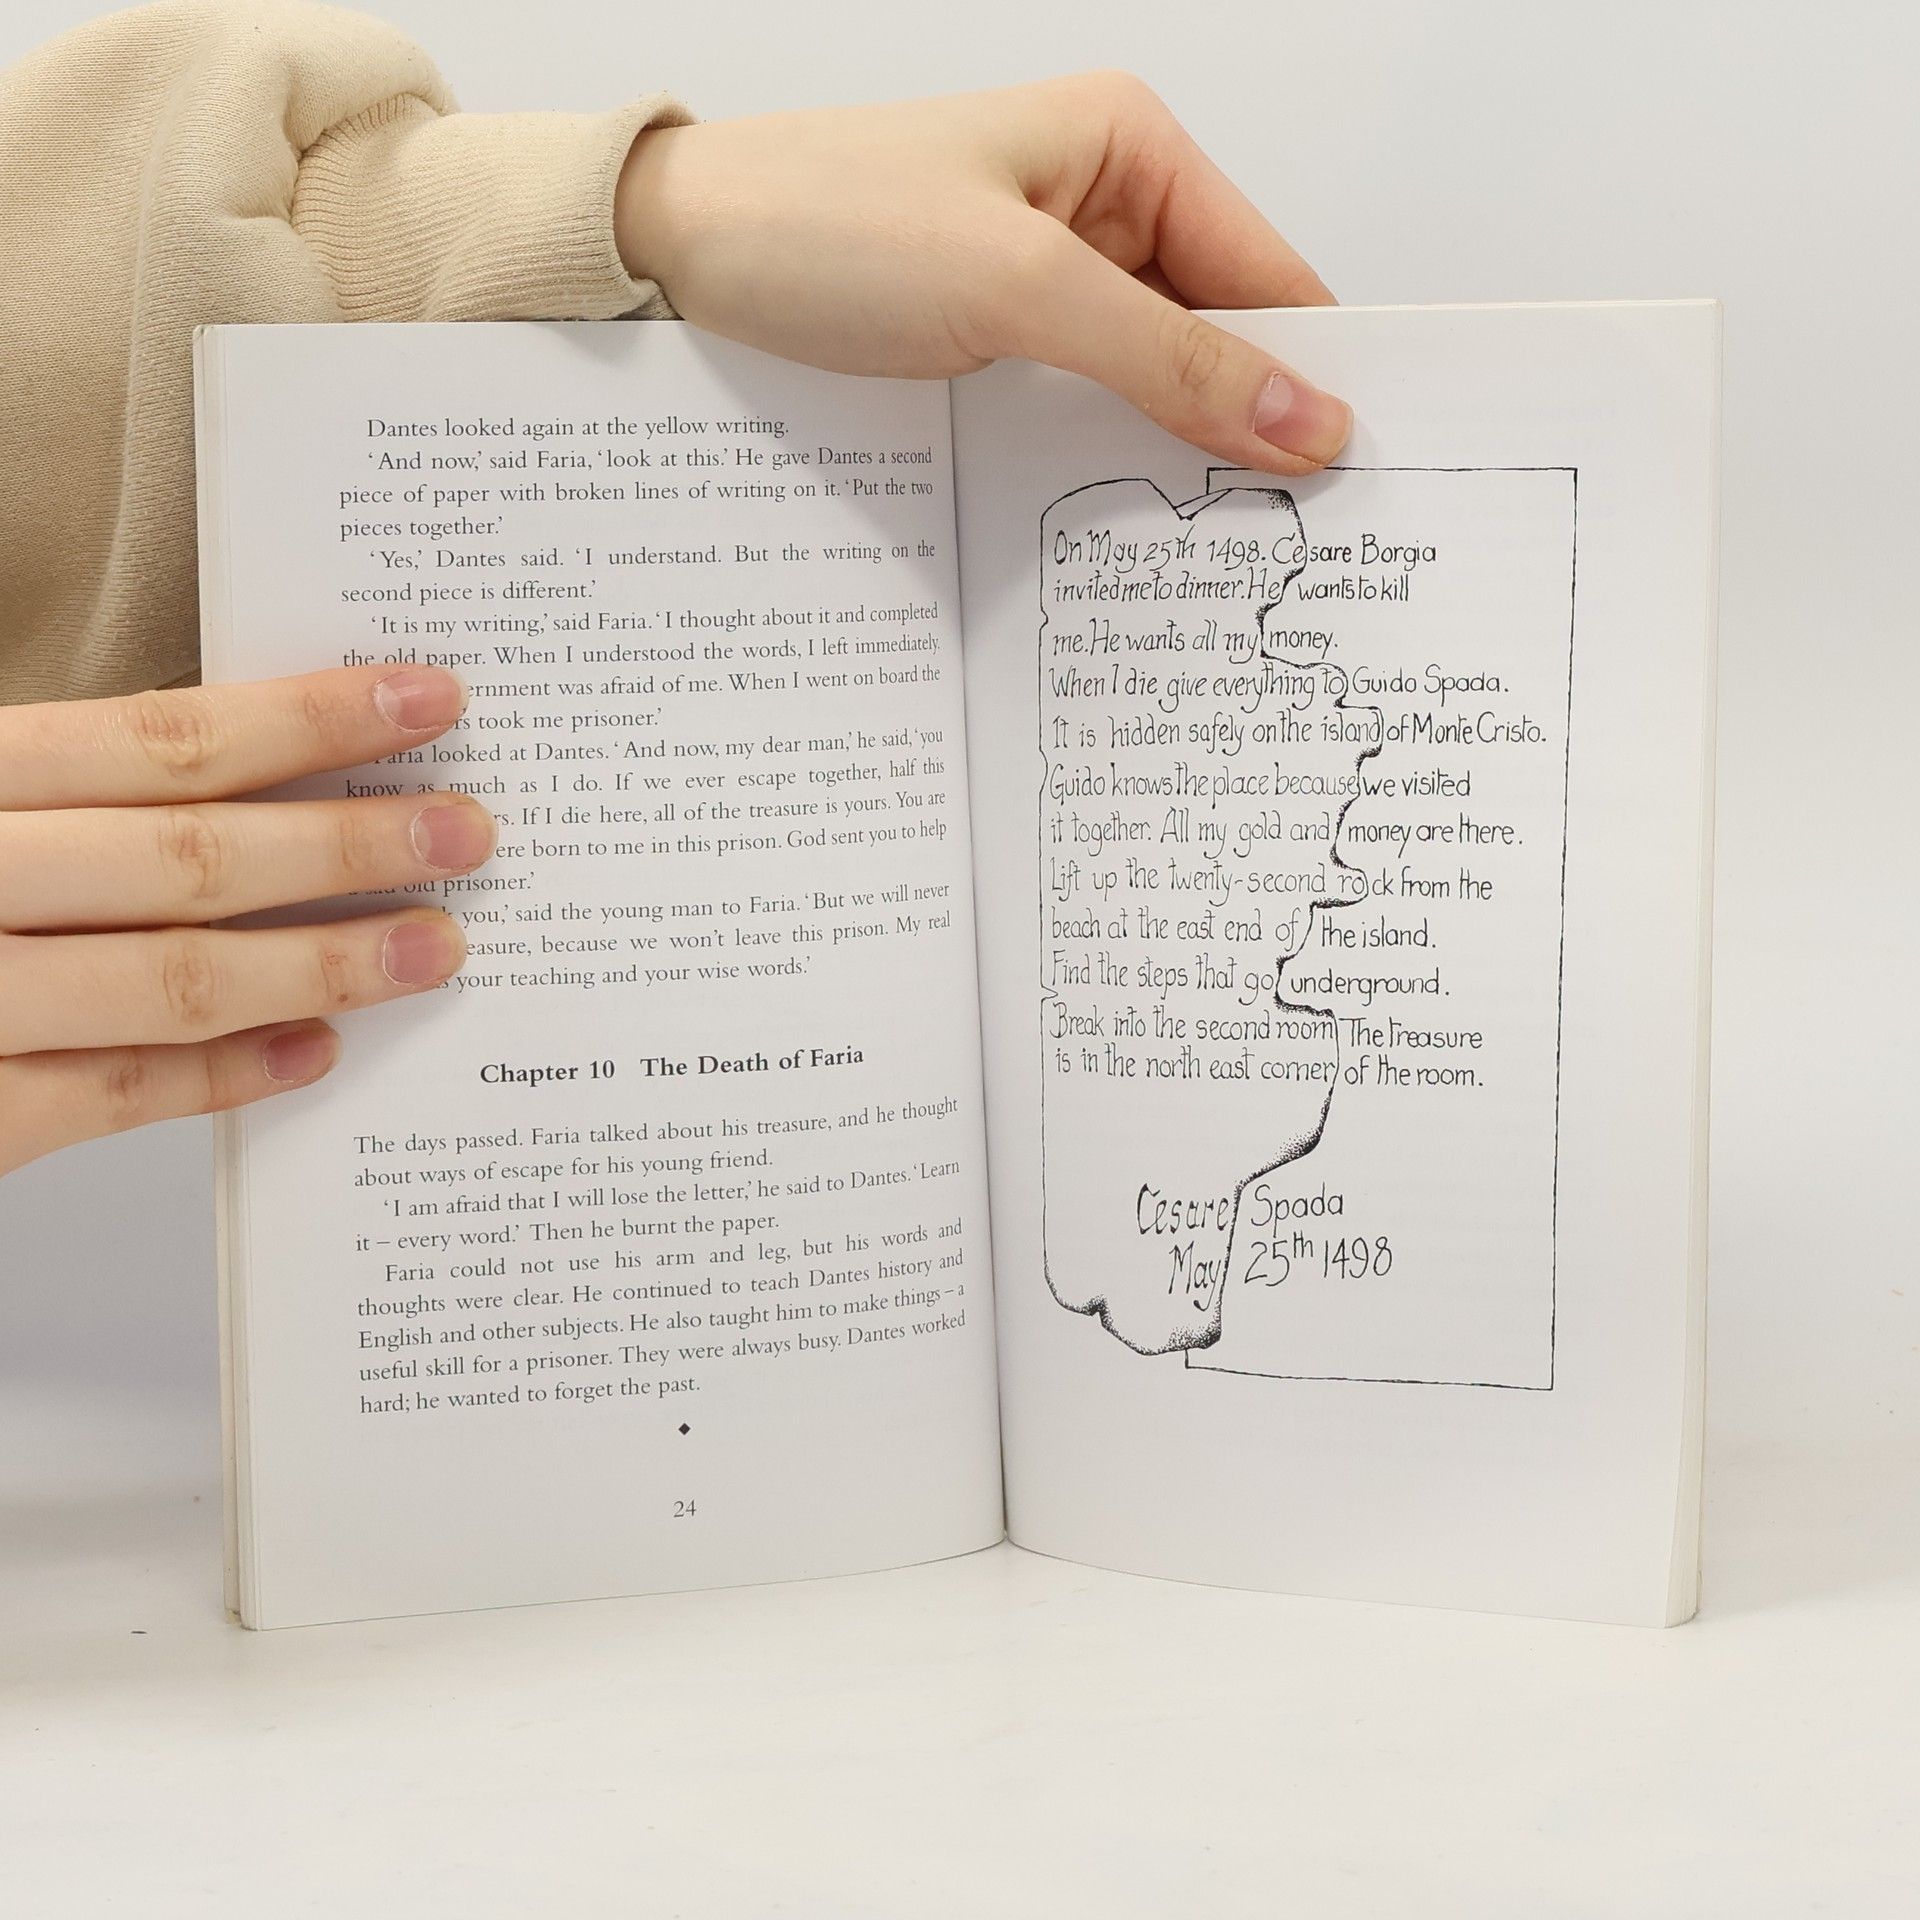 Dantes looked again at the yellow writing.
‘And now,’ said Faria, ‘look at this.’ He gave Dantes a second
piece of paper with broken lines of writing on it. ‘Put the two
pieces together.’
‘Yes,’ Dantes said. ‘I understand. But the writing on the
second piece is different.’
‘It is my writing,’ said Faria. ‘I thought about it and completed
the old paper. When I understood the words, I left immediately.
was afraid of me. When I went on board the
took me prisoner.’
Faria looked at Dantes. ‘And now, my dear man,’ he said, ‘you
know as much as I do. If we ever escape together, half this
If I die here, all of the treasure is yours. You are
born to me in this prison. God sent you to help
old prisoner.’
you,’ said the young man to Faria. ‘But we will never
because we won’t leave this prison. My real
your teaching and your wise words.’
Chapter 10 The Death of Faria
The days passed. Faria talked about his treasure, and he thought
about ways of escape for his young friend.
‘I am afraid that I will lose the letter,’ he said to Dantes. ‘Learn
it – every word.’ Then he burnt the paper.
Faria could not use his arm and leg, but his words and
thoughts were clear. He continued to teach Dantes history and
English and other subjects. He also taught him to make things – a
useful skill for a prisoner. They were always busy. Dantes worked
hard; he wanted to forget the past.
24
On May 25th 1498. Cesare Borgia
invited me to dinner. He wants to kill
me. He wants all my money.
When I die give everything to Guido Spada.
It is hidden safely on the island of Monte Cristo.
Guido knows the place because we visited
it together. All my gold and money are there.
Lift up the twenty-second rock from the
beach at the east end of the island.
Find the steps that go underground.
Break into the second room The treasure
is in the north east corner of the room.
Cesare Spada
May 25th 1498